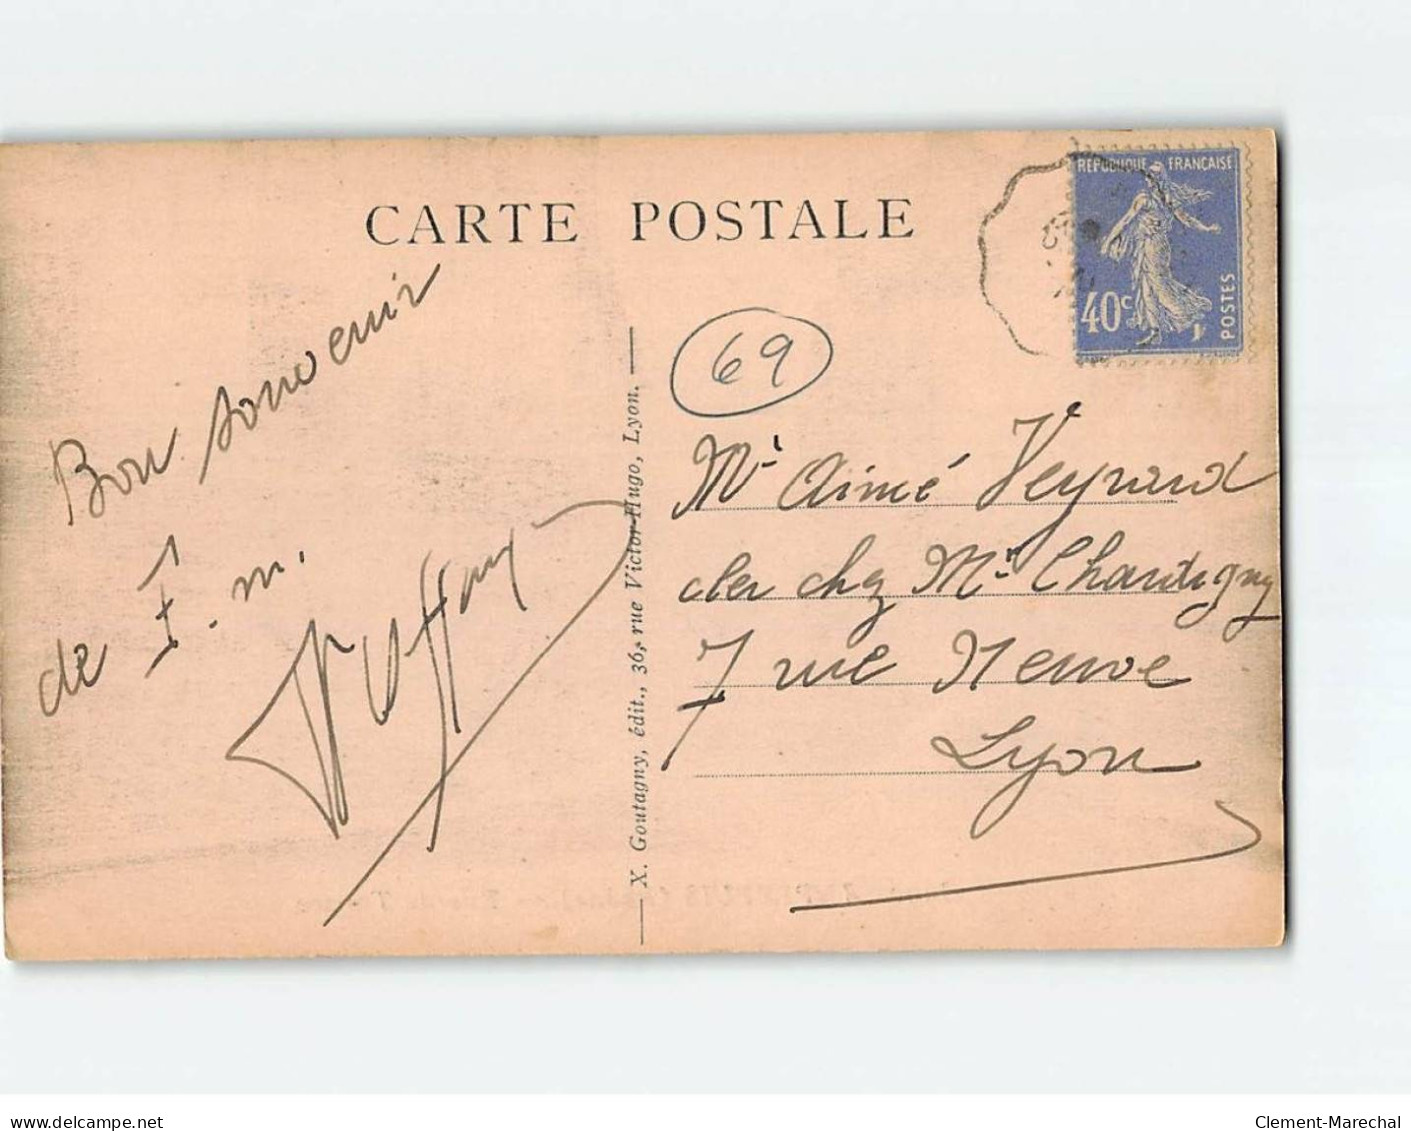 CARTE POSTALE
RÉPUBLIQUE FRANÇAISE
40c
POSTES
69
Bon souvenir
de F. m.
X. Goutagny, édit., 36, rue Victor-Hugo, Lyon.
Mr Aimé Veyrard
cler chez Mr Chardigny
7 rue Neuve
Lyon
www.delcampe.net
Clement-Marechal